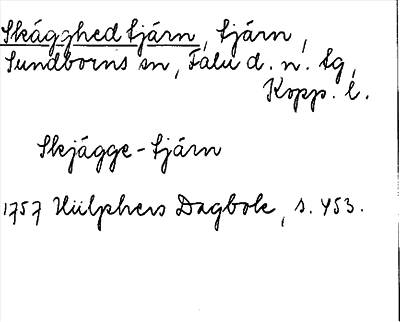 Skägghedtjärn, tjärn,
Sundborns sn, Falu d. n. tg,
Kopp. l.
Skjägge-tjärn
1757 Hülphers Dagbok, s. 453.